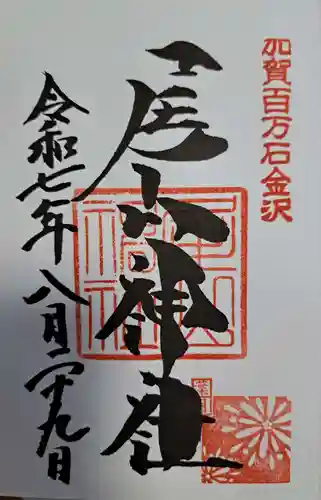 加賀百万石金沢
尾山神社
尾山神社
令和七年八月二十九日